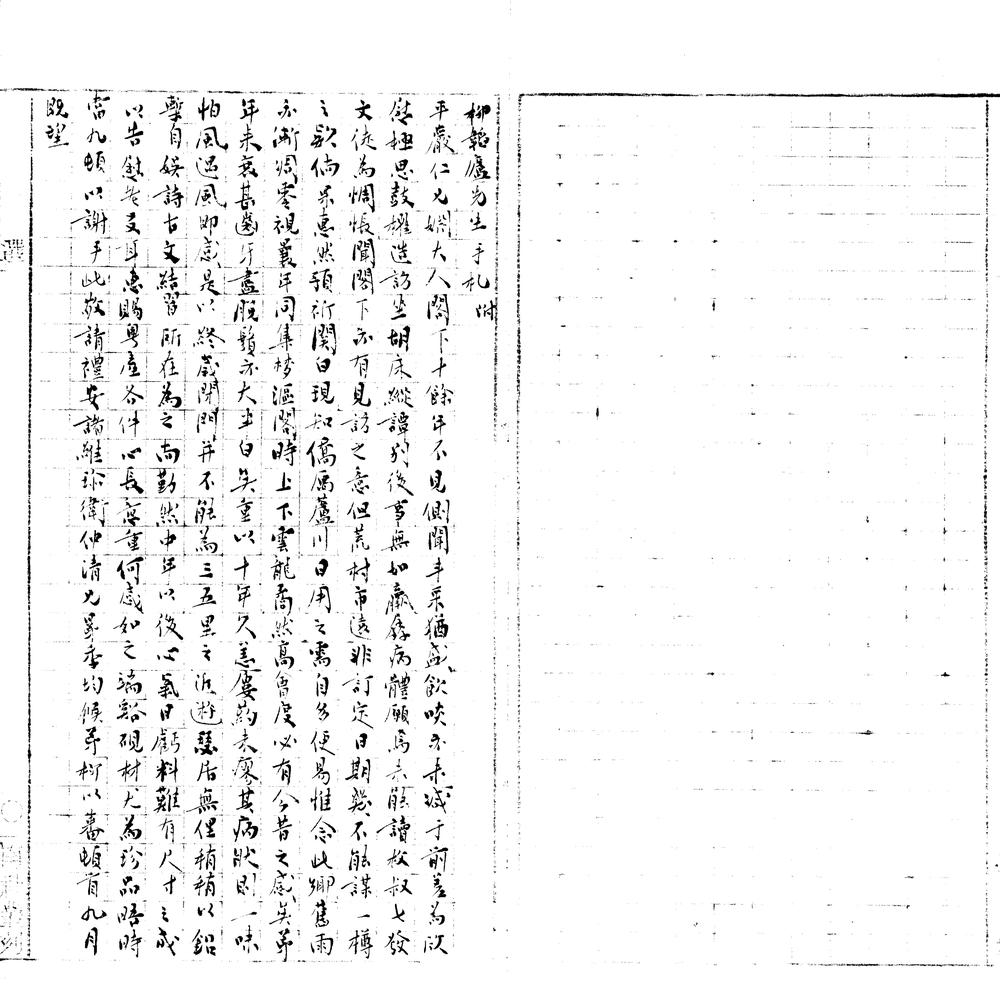 柳韜廬先生手札 附
平巖仁兄姻大人閣下十餘年不見側聞丰采猶盛飲啖亦未減于前差為欣
慰極思鼓櫂造訪坐胡床縱譚別後事無如羸孱病體願焉未能讀枚叔七發
文徒為惆悵聞閣下亦有見訪之意但荒村市遠非訂定日期幾不能謀一樽
之歡倘果惠然預祈関白現知僑寓蘆川日用之需自多便易惟念此鄉舊雨
亦漸凋零視曩年同集梦漚閣時上下雲龍喬然高會度必有今昔之感矣弟
年未衰甚齒牙盡脫鬚亦大半白矣重以十年久恙屢药未瘳其病狀則一味
怕風遇風即感是以終歲閉門并不能為三五里之近遊蟄居無俚稍稍以鉛
槧自娛詩古文結習所在為之尚勤然中年以後心氣日虧料難有尺寸之成
以告慰老友耳惠賜粤產各件心長意重何感如之端谿硯材尤為珍品晤時
當九頓以謝手此敬請禮安諸維珍衛仲清兄晜季均候弟柳以蕃頓首九月
既望